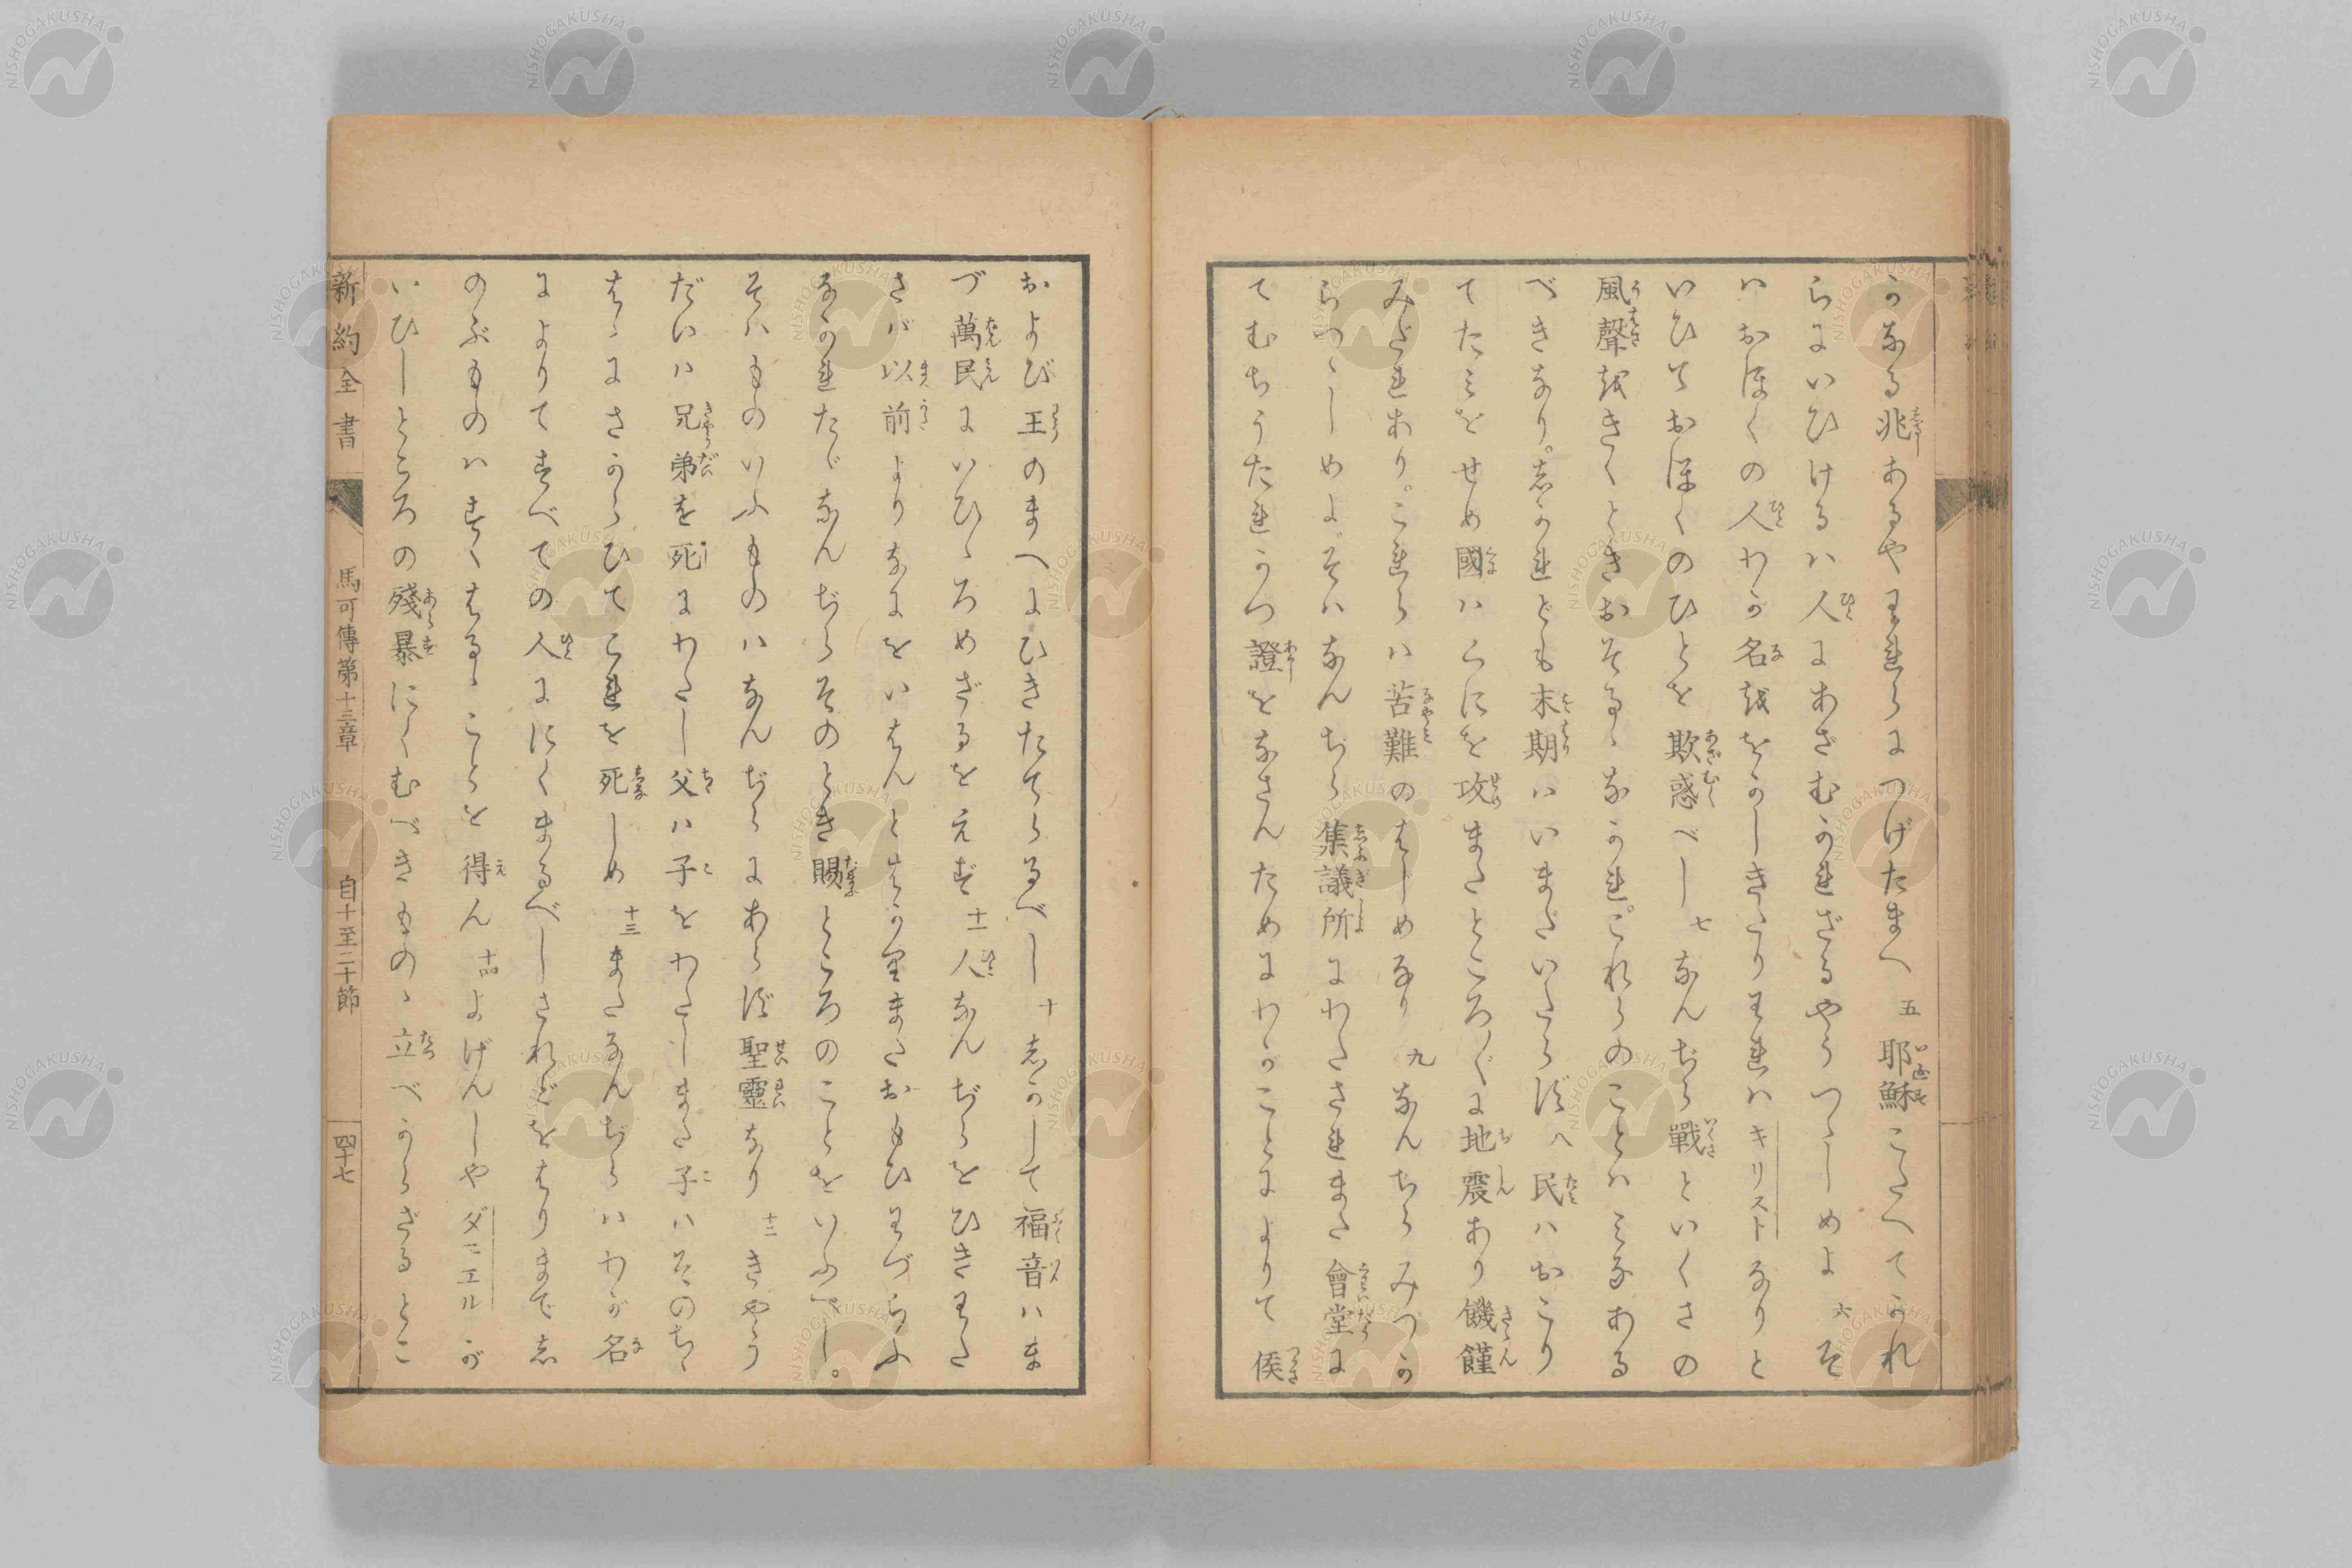 うなる兆あるやわれらにつげたまへ 五 耶穌こたへてかれ
らにいひけるハ人にあざむかれざるやうつゝしめよ 六 そ
ハおほくの人わが名をおかしきたりわれハキリストなりと
いひておほくのひとを欺惑べし 七 なんぢら戰といくさの
風聲をきくときおそるゝなかれ。これらのことハみなある
べきなり。しかれども末期ハいまだいたらず 八 民ハおこり
てたみをせめ國ハくにを攻またところ〴〵に地震あり饑饉
みだれあり。これらハ苦難のはじめなり 九 なんぢらみづか
らつゝしめよ。そハなんぢら集議所にわたされまた會堂に
てむちうたれかつ證をなさんためにわがことによりて侯
および王のまへにひきたてらるべし 十 しかして福音ハま
づ萬民にいひひろめざるをえず 十一 人なんぢらをひきわた
さバ以前よりなにをいはんとはかり又またおもひわづらふ
なかれたゞなんぢらそのとき賜ところのことをいふべし。
そハものいふものハなんぢらにあらず聖靈なり 十二 きやう
だいハ兄弟を死にわたし父ハ子をわたしまた子ハそのちゝ
はゝにさからひてこれを死しめ 十三 またなんぢらハわが名
によりてすべての人ににくまるべしされどをはりまでし
のぶものハすくはるゝことを得ん 十四 よげんしやダニエルが
いひしところの殘暴にくむべきものゝ立べからざるとこ
新約全書 馬可傳第十三章 自十至二十節 四十七